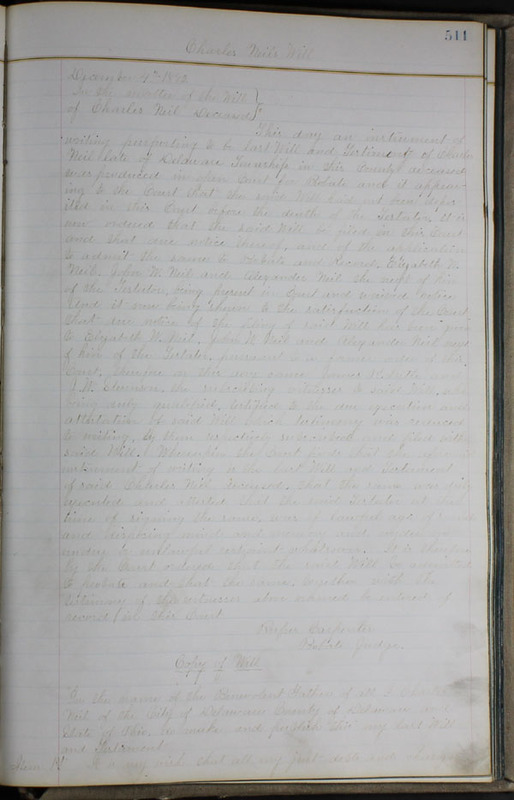 511
Charles Neil's Will
December 4th 1872
In the matter of the Will
of Charles Neil Deceased
This day an instrument of
writing purporting to be last Will and Testament of Charles
Neil late of Delaware Township in this County deceased
was produced in open Court for Probate and it appear-
ing to the Court that the said Will had not been depos-
ited in this Court before the death of the Testator, it is
now ordered that the said Will be filed in this Court
and that due notice thereof, and of the application
to admit the same to Probate and Record, Elizabeth W.
Neil, John W. Neil and Alexander Neil the next of kin
of the Testator, being present in Court and waived notice
And it now being shown to the satisfaction of the Court
that due notice of the filing of said Will has been given
to Elizabeth W. Neil, John W. Neil and Alexander Neil next
of kin of the Testator, pursuant to a former order of this
Court. Therefore on this day came
the subscribing witnesses to said Will, who
being duly qualified, testified to the due execution and
attestation of said Will which testimony was reduced
to writing, by them respectively subscribed and filed with
said Will. Whereupon the Court finds that the
instrument of writing is the last Will and Testament
of said Charles Neil deceased, that the same was
executed and attested that the said Testator at the
time of signing the same, was of lawful age of sound
and disposing mind and memory and
under no unlawful restraint whatsoever. It is therefore
by the Court ordered that the said Will be admitted
to probate and that the same, together with the
testimony of the witnesses above named be entered of
record in this Court
Carpenter
Probate Judge.
Copy of Will
In the name of the Benevolent Father of all I Charles
Neil of the City of Delaware County of Delaware and
State of Ohio, do make and publish this my last Will
and Testament
Item 1st It is my wish that all my just debts and